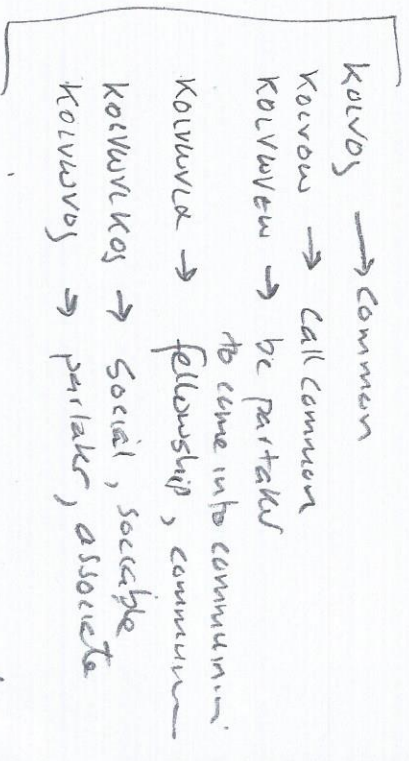 κοινος → Common
κοινοω → Call common
κοινωνεω → be partaker
to come into communion
κοινωνια → fellowship, communion
κοινωνικος → Social, sociable
κοινωνος → partaker, associate